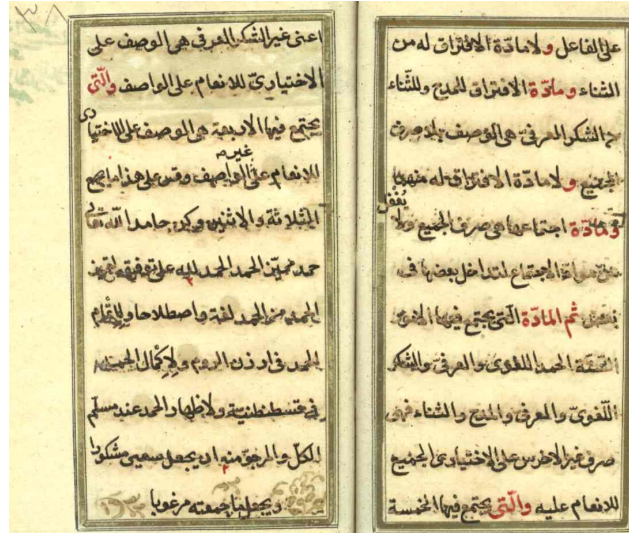 على الفاعل ولا مادّة الافتراق له من
الثناء ومادّة الافتراق للمدح وللثناء
الشكر العرفيّ هى الوصف بلا صرف
الجميع ولا مادّة الافتراق له منهما
ومادّة اجتماعها هى صرف الجميع ولا
يغفل
مادّة الاجتماع لتداخل بعضها فى
بعض ثم المادّة الّتى يجتمع فيها
الحمد اللغوىّ والعرفىّ والشكر
اللّغوىّ والعرفىّ والمدح والثناء فهو
صرف غير الاخرس على الاختيارى الجميع
للانعام عليه والّتى يجتمع فيها الخمسة
٣٨
اعنى غير الشكر العرفى هى الوصف على
الاختيارىّ للانعام على الواصف والّتى
يجتمع فيها الاربعة هى الوصف على الاختيارى
غير
للانعام على الواصف وقس على هذا ما يجمع
الثلاثة والاثنين وكن حامدا الله تعالى
حمد مميّز الحمد الحمد لله على توفيقه لتميز
الحمد من الحمد لغة واصطلاحا ولإتمام
الحمد فى ارذن الروم ولإكمال الحمد
فى قسطنطنيّة ولاظهار الحمد عند مسلّم
الكلّ والمرجوّ منه ان يجعل سعيى مشكورا
ويجعل ما جمعته مرغوبا